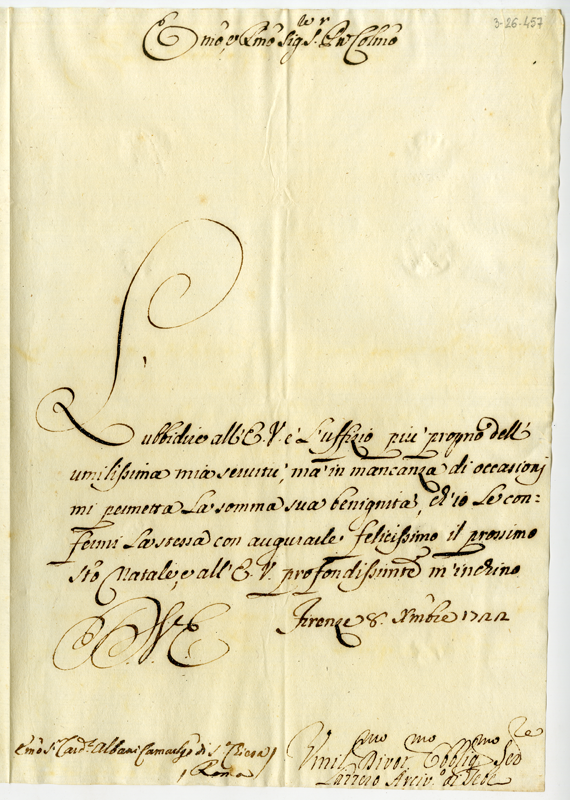 3-26-457
Emo, e Rmo Sig.r S.r P.n Colmo
L'ubbidire all'E.V. è L'uffizio più proprio dell'
umilissima mia servitù; mà in mancanza di occasioni
mi permetta La somma sua benignità, ch'io Le con=
fermi La stessa con augurarle felicissimo il prossimo
Sto Natale, e all'E.V. profondissimte m'inchino
Firenze 8. Xmbre 1722
D. V. E.
Emo S.r Card.le Albani Camarlgo di S.ta Chiesa
Roma
Umilmo Divotmo Obbligmo Sedre
Arciv.o di